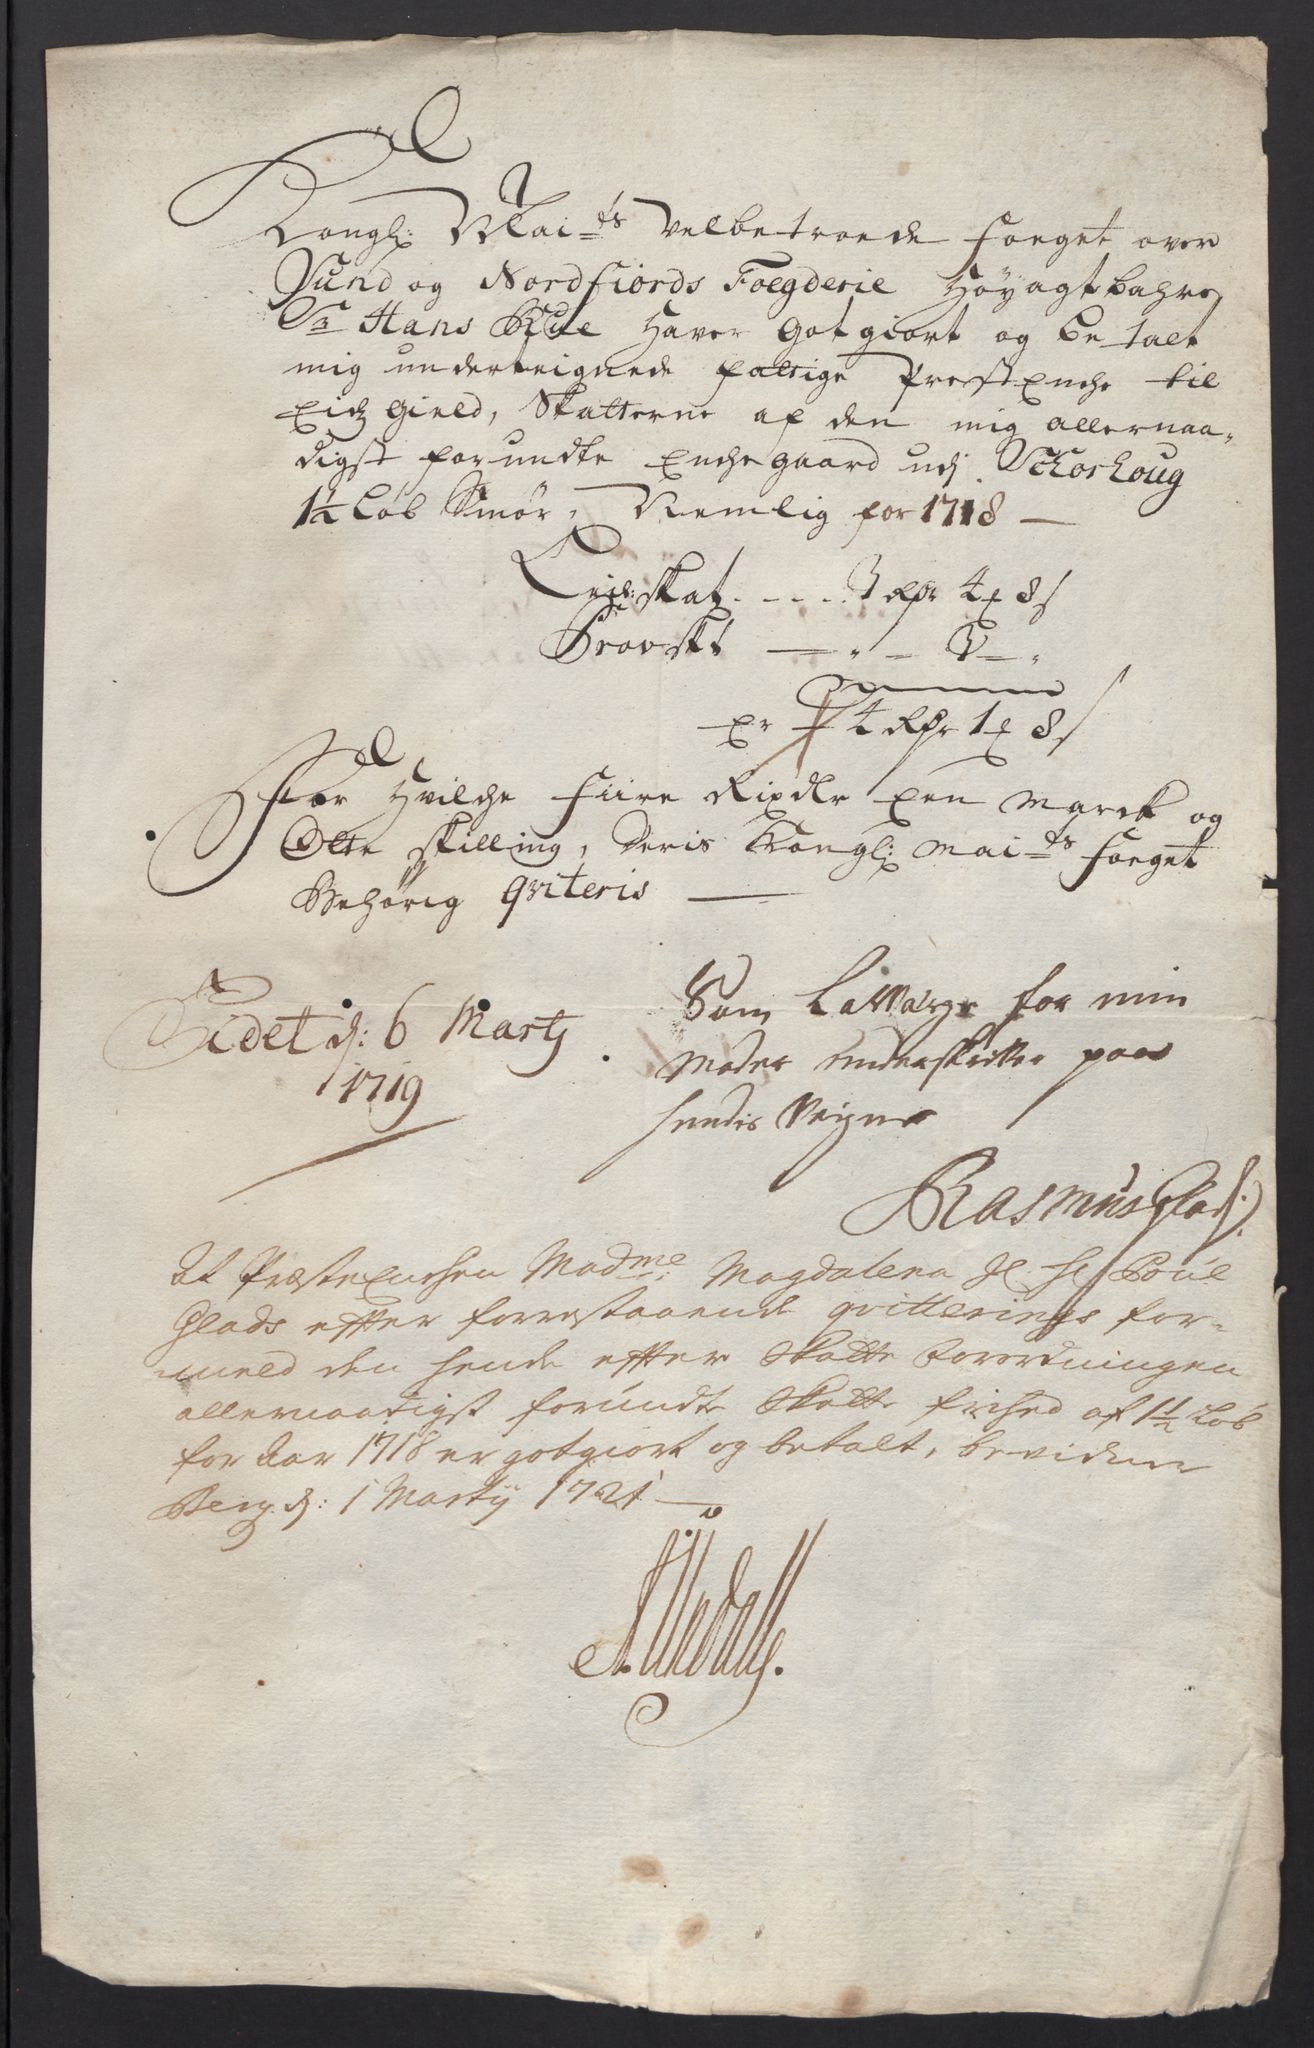 Kongl: Mai=ts Velbetroede Foeget over
Sund og Nordfiords Foegderie Høyagtbahre
Sr Hans Rue Haver Gotgiort og betalt
mig underteignede fattige PrestEnche til
Eids Gield, Skatterne af den mig allernaa-
digst forundte Enchegaard udj Schorhoug
1½ Løb Smør, Nemlig for 1718 —
Leil: skat . - - . . 3 Rdr 4 ₰ 8 s
Provskt — „ — 3 — „
er 4 Rdr 1 ₰ 8 s
For Hvilche Fiire Rixdlr Een Marck og
Otte skilling, Deris Kongl: Mai=ts Foeget
Behørig qviteris —
Eidet d: 6 Martj
1719
Som LauVærge for min
Moder underskriver paa
hendis Veigne
Rasmus Glad.
At PræsteEnchen Madme: Magdalena Sl. Hr Poùl
Glads effter forrestaaende qvitterings for-
meld den hende effter Skatte Forordningen
allernaadigst forundte Skatte frihed af 1½ Løb
for Aar 1718 er gotgiort og betalt, bevidner
Berg d: 1 Martij 1721 —